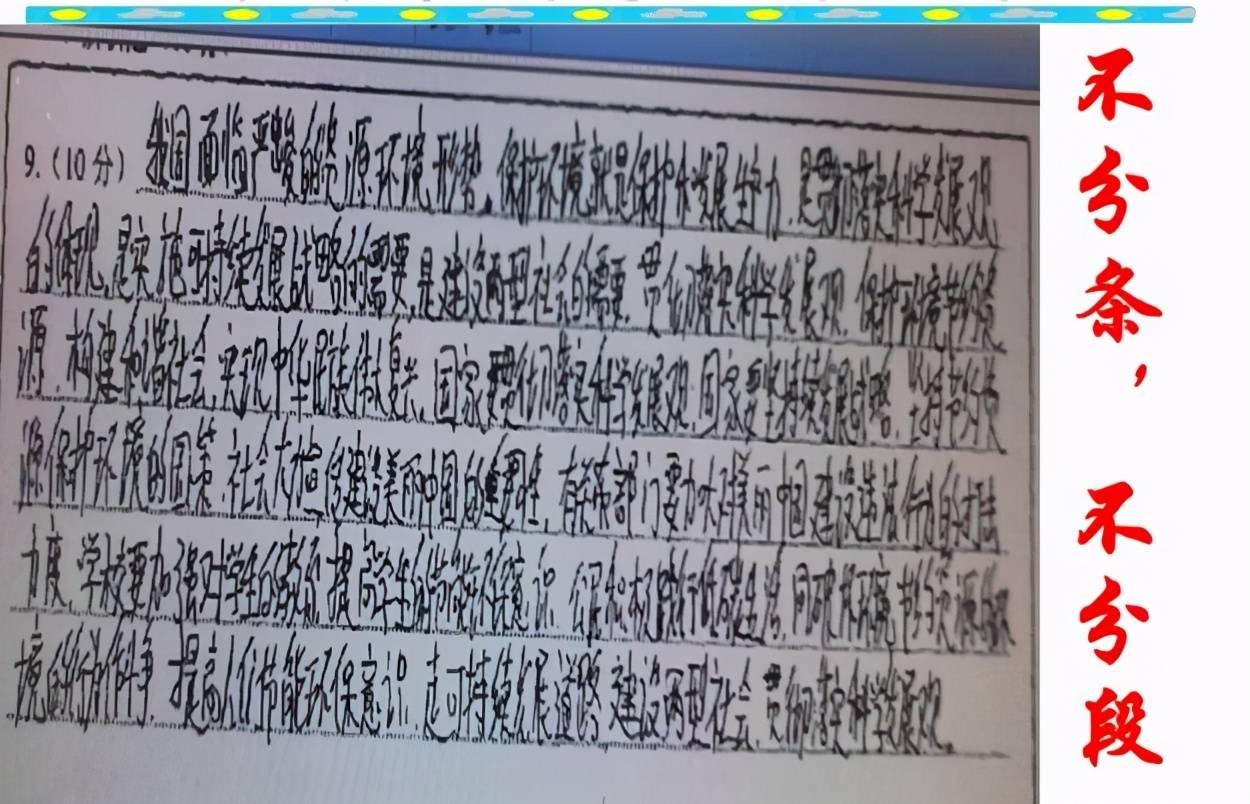 9.(10分)我国面临严峻的资源环境形势,保护环境就是保护和发展生产力,是贯彻落实科学发展观
的体现,是实施可持续发展战略的需要,是建设两型社会的需要,贯彻落实科学发展观,保护环境节约资
源,构建和谐社会,实现中华民族伟大复兴,国家要贯彻落实科学发展观,国家要坚持可持续发展战略,坚持节约资
源保护环境的国策,社会大力宣传建设美丽中国的重要性,有关部门要加大对美丽中国建设违法行为的打击
力度,学校要加强对学生的教育,提高学生的节能环保意识,公民积极践行低碳生活,同破坏环境,浪费资源
境的行为作斗争,提高人们节能环保意识,走可持续发展道路,建设两型社会,贯彻落实科学发展观。
不分条,
不分段